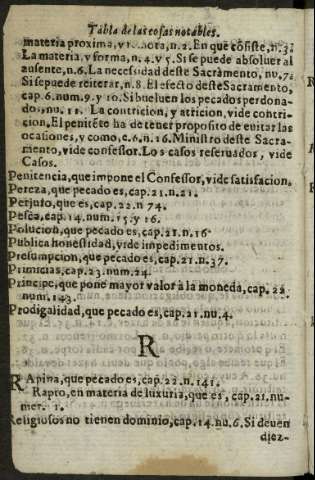 Tabla de las cosas notables.
materia proxima, y remota, n. 2. En que cósiste, n. 3.
La materia, y forma, n. 4. y 5. Si se puede absoluer al
ausente, n. 6. La necessidad deste Sacramento, nu. 7.
Si se puede reiterar, n. 8. El efecto deste Sacramento,
cap. 6. num. 9. y 10. Si bueluen los pecados perdona-
dos, nu. 11. La contricion, y atricion, vide contri-
cion, El penitéte ha de tener proposito de euitar las
ocasiones, y como, c. 6, n. 16. Ministro deste Sacra-
mento, vide confessor. Los casos reseruados, vide
Casos.
Penitencia, que impone el Confessor, vide satisfacion.
Pereza, que pecado es, cap. 21. n. 21.
Perjuro, que es, cap. 22. n 74.
Pesca, cap. 14. num. 15. y 16.
Polucion, que pecado es, cap. 21. n. 16
Publica honestidad, vide impedimentos.
Presumpcion, que pecado es, cap. 21. n. 37.
Primicias, cap. 23. num. 24.
Principe, que pone mayor valor à la moneda, cap. 22
num. 143.
Prodigalidad, que pecado es, cap. 21. nu. 4.
R
RApina, que pecado es, cap. 22. n. 141.
Rapto, en materia de luxuria, que es, cap. 21. nu-
mer. 1.
Religiosos no tienen dominio, cap. 14. nu. 6. Si deuen
diez-